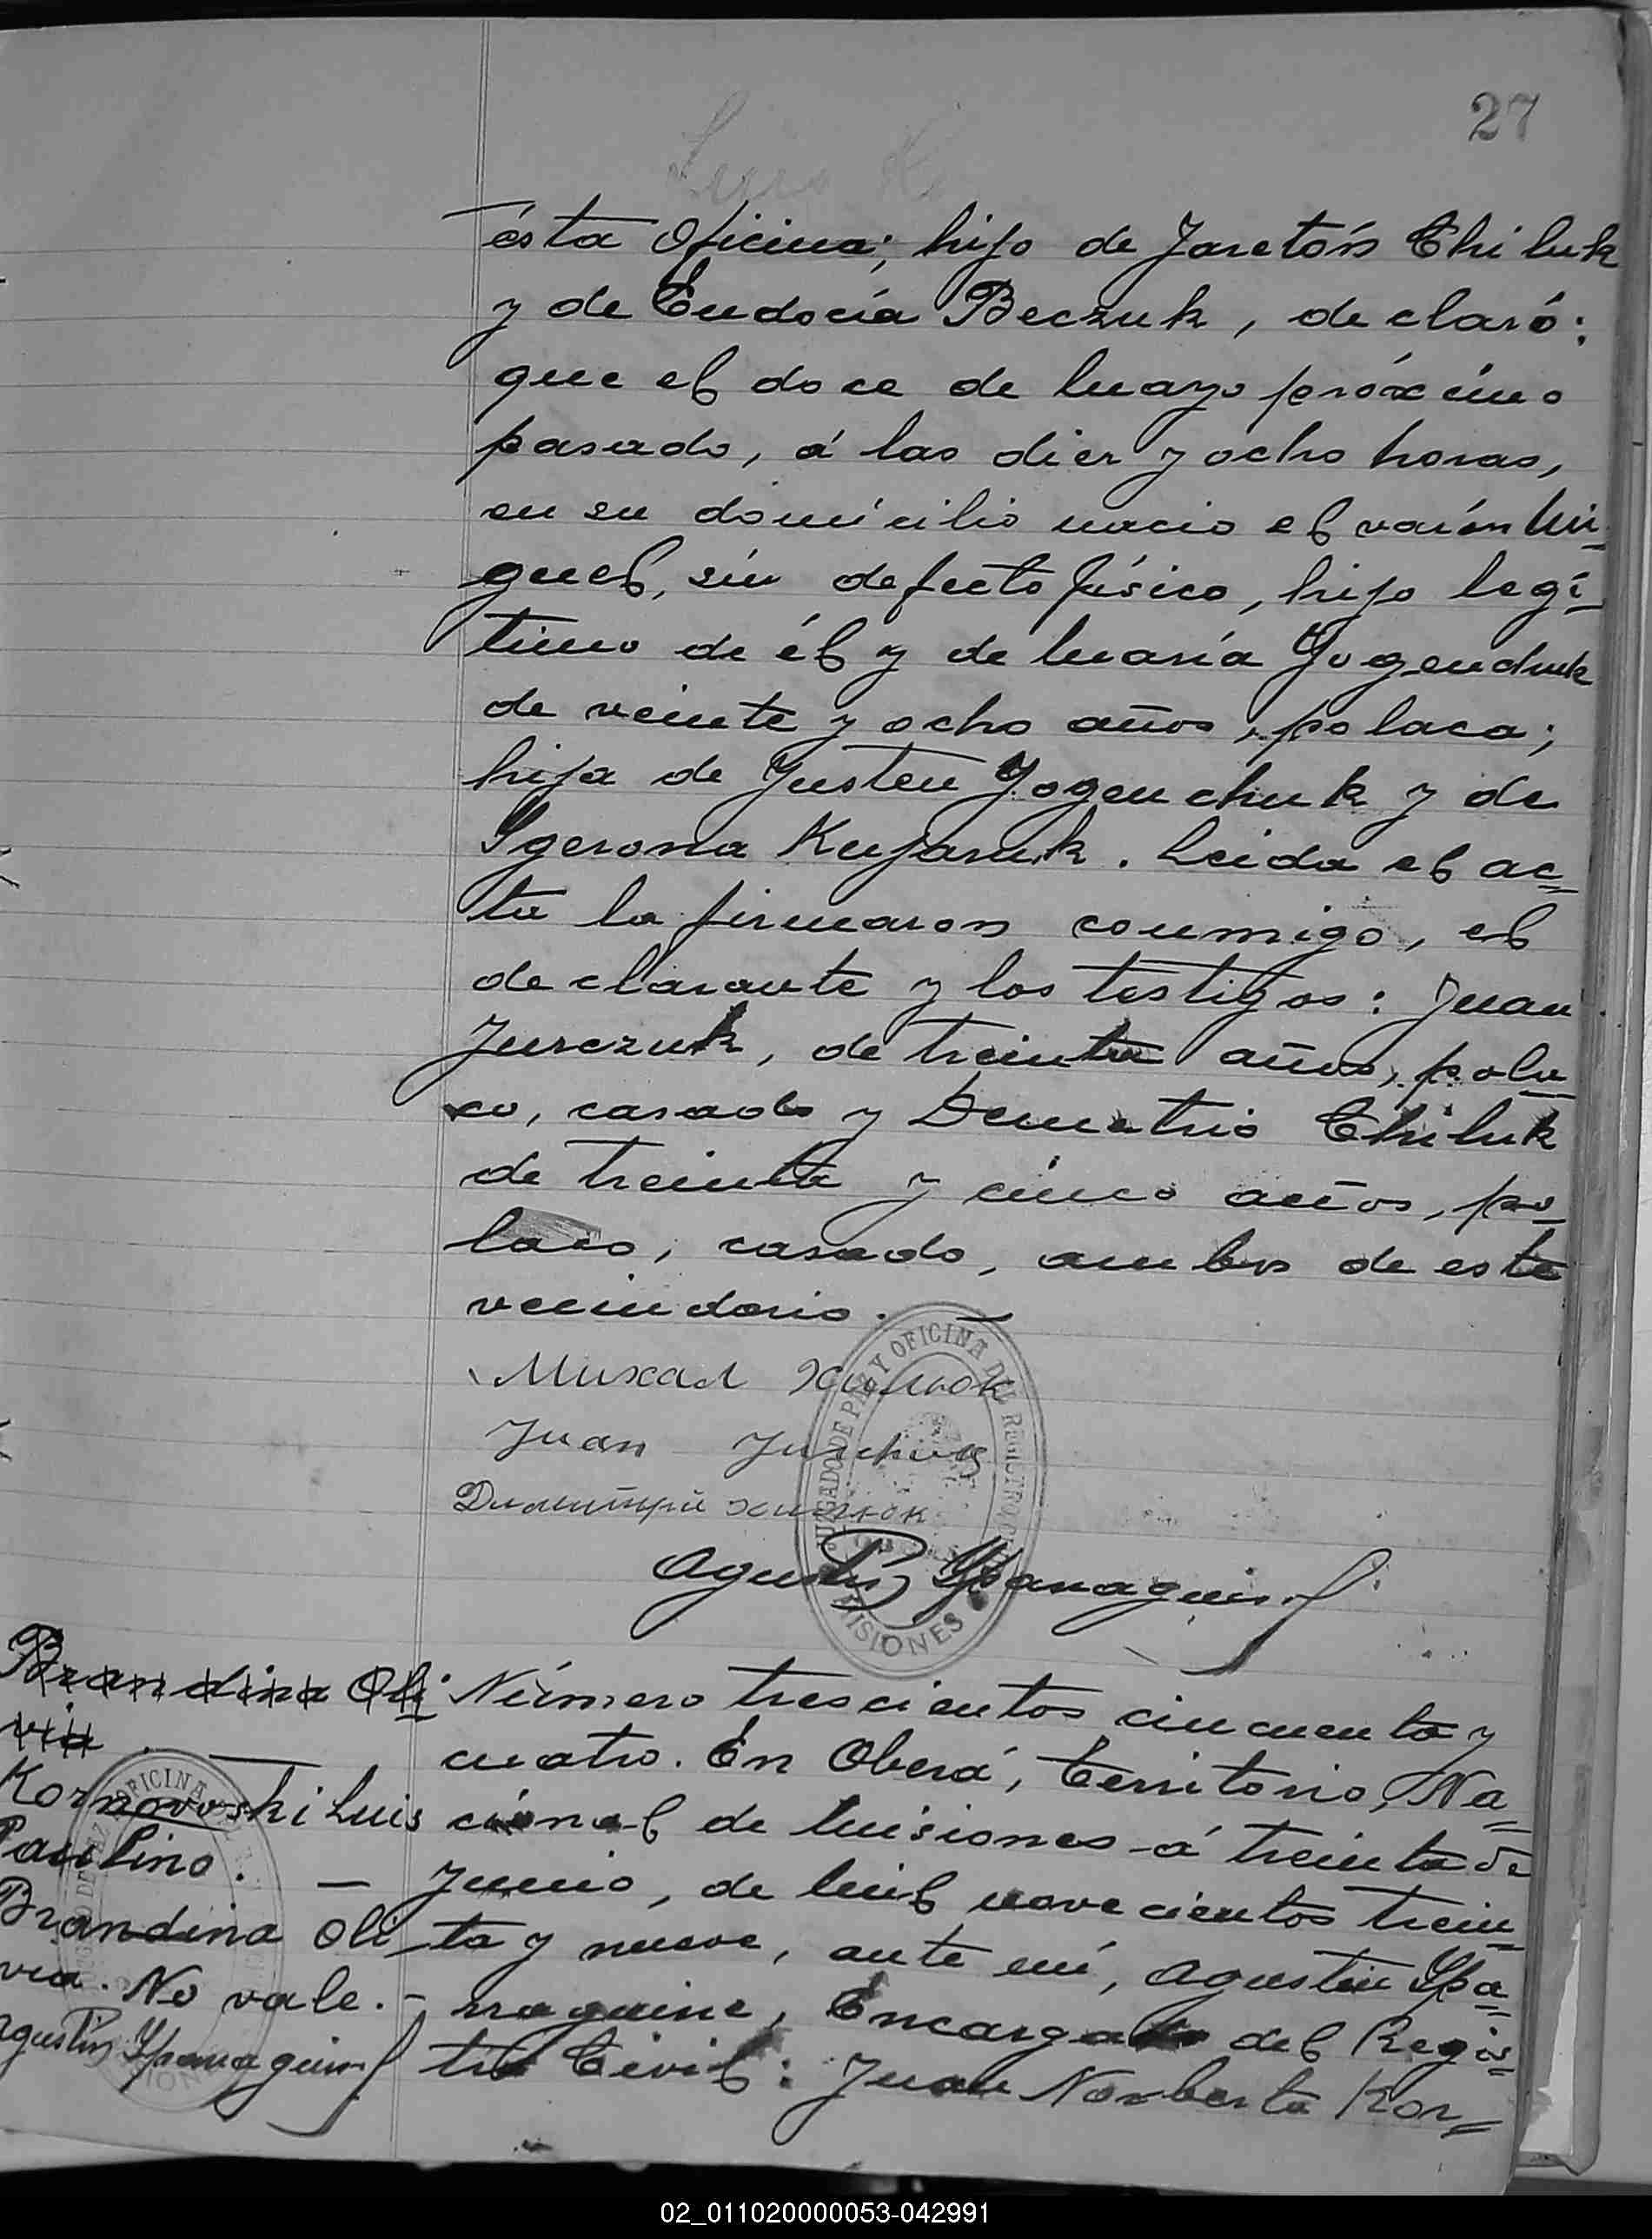 27
ésta Oficina; hijo de Jaretón Chiluk
y de Eudocia Beczuk, declaró:
que el doce de mayo próximo
pasado, á las diez y ocho horas,
en su domicilio nacio el varón Mi-
guel, sin defecto físico, hijo legí-
timo de él y de María Yogenchuk
de veinte y ocho años, polaca;
hija de Justen Yogenchuk y de
Ygerona Kujaruk. Leida el ac-
ta la firmaron conmigo, el
declarante y los testigos: Juan
Jurczuk, de treinta años, pola-
co, casado y Demetrio Chiluk
de treinta y cinco años, po-
laco, casado, ambos de este
vecindario.
Михал Хилюк
Juan Jurchuk
Димитрий Хилюк
JUZGADO DE PAZ Y OFICINA DEL REGISTRO CIVIL
MISIONES
Agustín Yparraguirre
Brandina Oli-
via.
Kornovoski Luis
Paulino. —
Brandina Oli-
via. No vale. -
Agustín Yparraguirre
Número trescientos cincuenta y
cuatro. En Oberá, Territorio, Na-
cional de Misiones á treinta de
Junio, de mil novecientos trein-
ta y nueve, ante mí, Agustín Ypa-
rraguirre, Encargado del Regis-
tro Civil: Juan Norberto Kor-
02_011020000053-042991